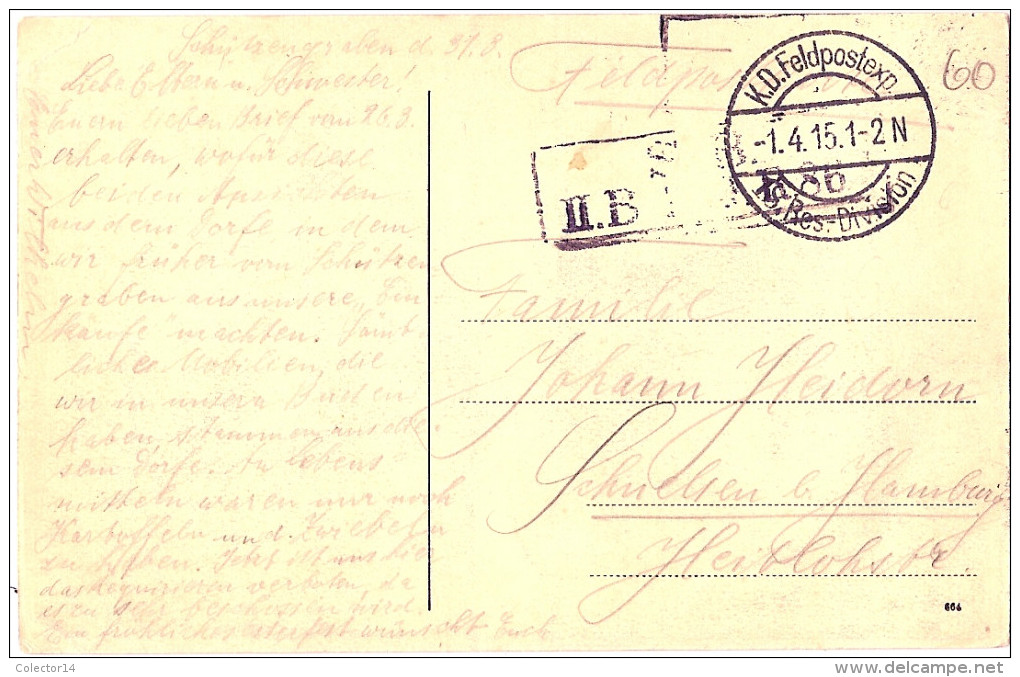 Schützengraben d. 31.3.
Liebe Eltern u. Schwester!
Euern lieben Brief vom 26.3.
erhalten, wofür diese
beiden Ansichten
aus dem Dorfe in dem
wir früher vom Schützen
graben aus unsere „Ein
käufe" machten. Sämt
liches Mobilien, die
wir in unsern Buden
haben, stammen aus die-
sem Dorfe. An Lebens
mitteln waren nur noch
Kartoffeln und Zwiebeln
zu haben. Jetzt ist uns hier
das Requirieren verboten, da
es zu sehr beschossen wird.
Ein fröhliches Osterfest wünscht Euch
Euer Wilhelm
Feldpost
K.D. Feldpostexp.
-1.4.15.1-2N
Res.-Division
II.B
60
Familie
Johann Heidorn
Schnelsen b. Hamburg
Heidlohstr.
664
Colector14
www.delcampe.net